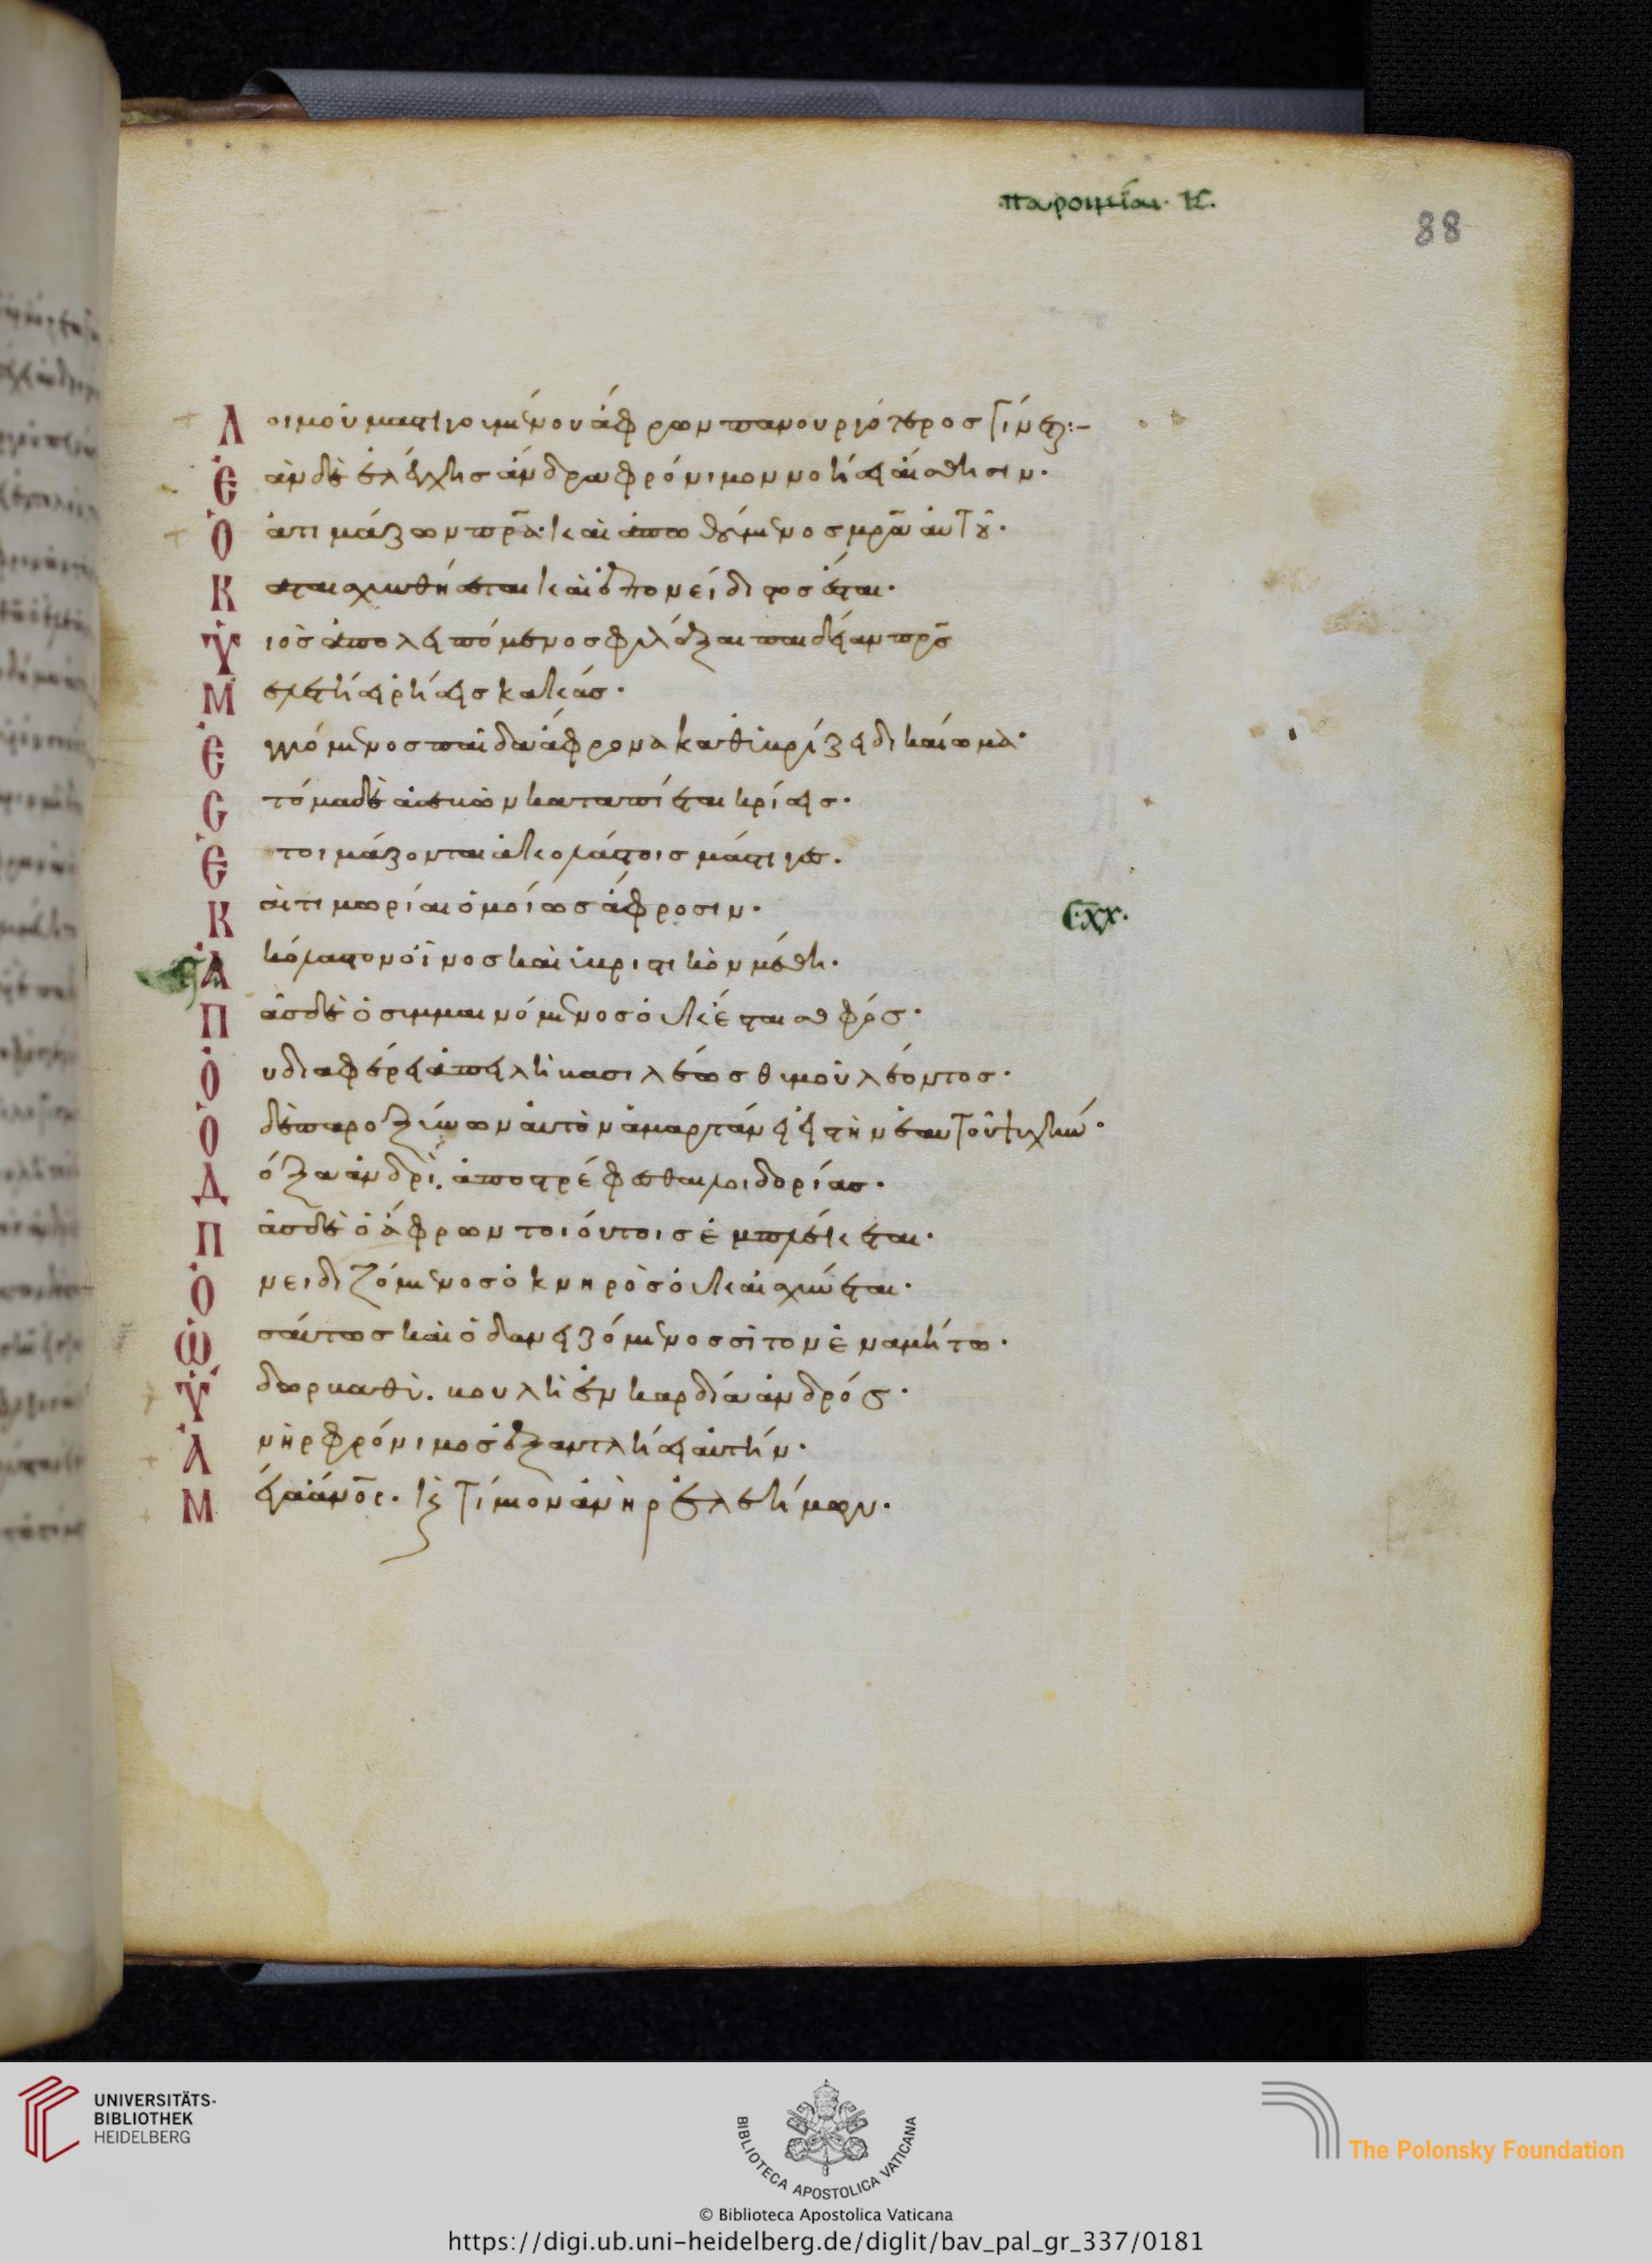 παροιμίαι. κ.
88
Λοιμοῦ μαστιγουμένου ἄφρων πανουργότερος γίνεται:-
Ἐὰν δὲ ἐλέγχης ἄνδρα φρόνιμον νοήσει αἴσθησιν.
Ὁ ἀτιμάζων πρ̅α· καὶ ἀπωθούμενος μρ̅α αὐτοῦ.
Καταισχυνθήσεται καὶ ἐπονείδιστος ἔσται.
Ὑιὸς ἀπολειπόμενος φυλάξαι παιδείαν πρ̅ς
Μελετήσει ῥήσεις κακάς.
Ἐγγυόμενος παῖδα ἄφρονα καθυβρίζει δικαίωμα·
Στόμα δὲ ἀσεβῶν καταπίεται κρίσεις.
Ἑτοιμάζονται ἀκολάστοις μάστιγες.
Καὶ τιμωρίαι ὁμοίως ἄφροσιν.
Ἀκόλαστον οἶνος καὶ ὑβριστικὸν μέθη.
Πᾶς δὲ ὁ συμμαινόμενος οὐκ ἔσται σοφός.
Οὐ διαφέρει ἀπειλὴ βασιλέως θυμοῦ λέοντος.
Ὁ δὲ παροξύνων αὐτὸν ἁμαρτάνει εἰς τὴν ἑαυτοῦ ψυχήν.
Δόξα ἀνδρὶ. ἀποστρέφεσθαι λοιδορίας.
Πᾶς δὲ ὁ ἄφρων τοιούτοις ἐμπλέκεται.
Ὀνειδιζόμενος ὀκνηρὸς οὐκ αἰσχύνεται.
Ὡσαύτως καὶ ὁ δανειζόμενος σῖτον ἐν ἀμήτω.
Ὕδωρ βαθὺ. βουλὴ ἐν καρδία ἀνδρός.
Ἀνὴρ φρόνιμος ἐξαντλήσει αὐτήν.
Μέγα ἄνο̅ς. καὶ τίμιον ἀνὴρ ἐλεήμων.
UNIVERSITÄTS-
BIBLIOTHEK
HEIDELBERG
BIBLIOTECA APOSTOLICA VATICANA
The Polonsky Foundation
© Biblioteca Apostolica Vaticana
https://digi.ub.uni-heidelberg.de/diglit/bav_pal_gr_337/0181